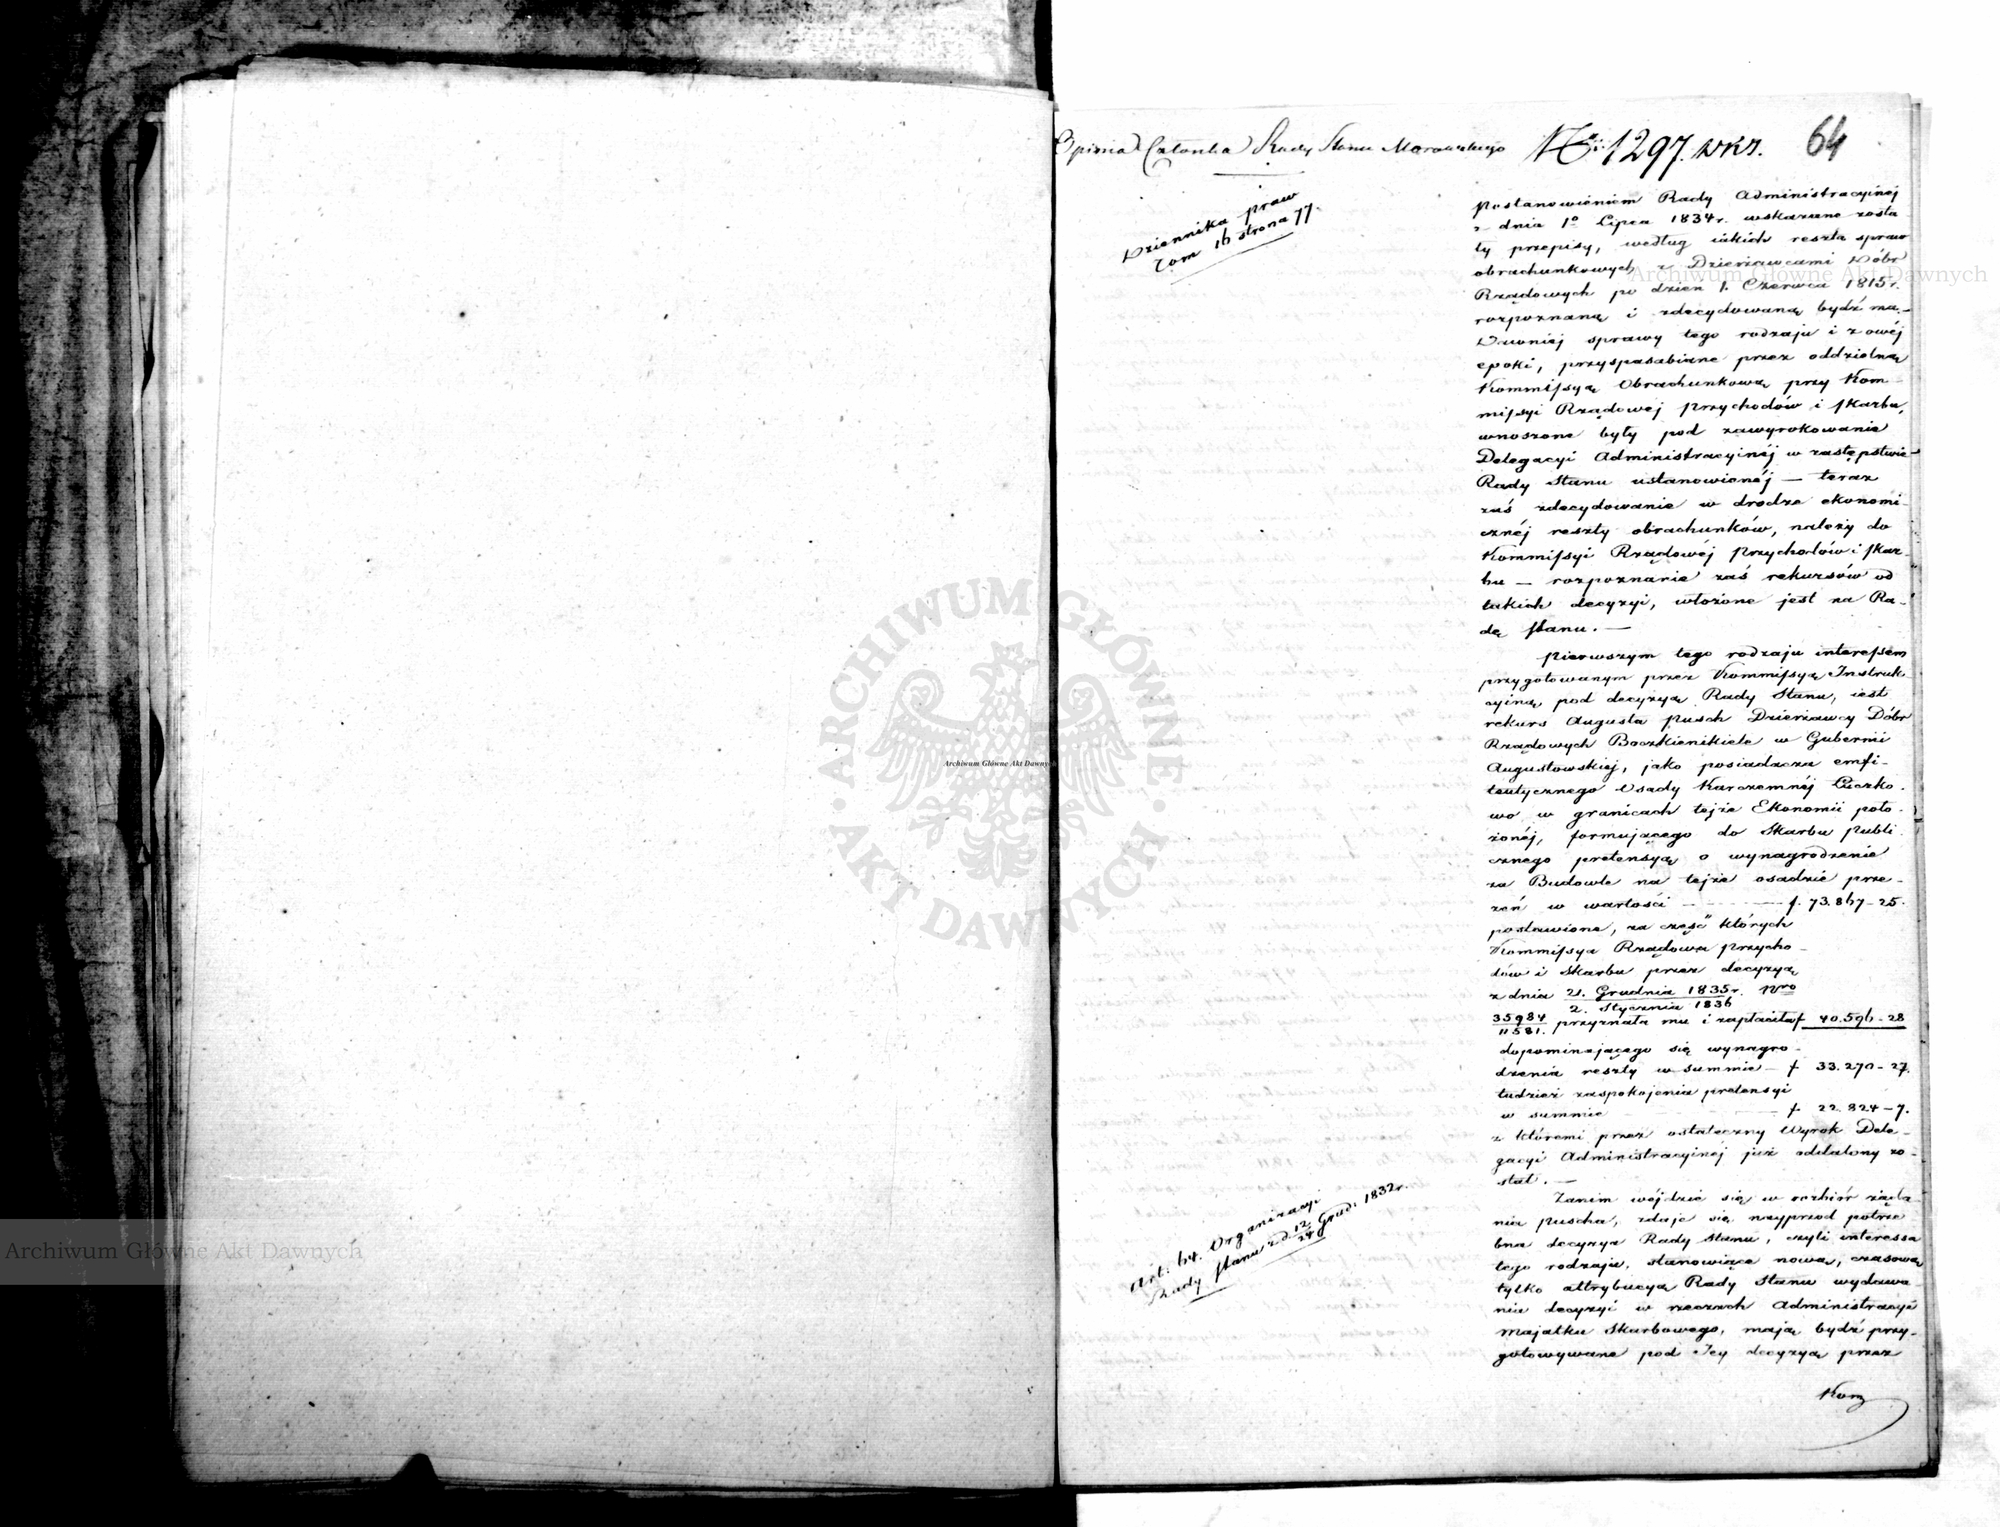 Opinia Członka Rady Stanu Morawskiego
Nr 1297. WKr.
64
Dziennika praw
Tom 16 strona 77.
Postanowieniem Rady Administracyinej
z dnia 1o Lipca 1834 r. wskazane zosta
ły przepisy, według iakich reszta spraw
obrachunkowych z Dzierżawcami Dóbr
Rządowych po dzień 1. Czerwca 1815 r.
rozpoznaną i zdecydowaną bydź ma. —
Dawniéj sprawy tego rodzaju i z owéj
epoki, przysposabiane przez oddzielną
Kommissyą Obrachunkową przy Kom
missyi Rządowéj Przychodów i Skarbu,
wnoszone były pod zawyrokowanie
Delegacyi Administracyinéj w zastępstwie
Rady Stanu ustanowionéj — teraz
zaś zdecydowanie w drodze ekonomi
cznéj reszty obrachunków, należy do
Kommissyi Rządowéj Przychodów i Skar-
bu — rozpoznanie zaś rekursów od
takich decyzyi, włożone jest na Ra-
dę Stanu. —
Pierwszym tego rodzaju interessem
przygotowanym przez Kommissyą Instruk
cyiną pod decyzyą Rady Stanu, iest
rekurs Augusta Pusch Dzierżawcy Dóbr
Rządowych Boczkienikiele w Gubernii
Augustowskiej, jako posiadacza emfi-
teutycznego Osady Karczemnéj Puczko-
wo w granicach tejże Ekonomii poło-
żonéj, formującego do Skarbu Publi
cznego pretensyą o wynagrodzenie
za Budowle na tejże osadzie prze-
zeń w wartości — f. 73.867-25.
postawione, za część których
Kommissya Rządowa Przycho-
dów i Skarbu przez decyzyą
z dnia 21. Grudnia 1835 r. Nro
2. Stycznia 1836
35984
11581. przyznała mu i zapłaciła f 40.596-28
dopominającego się wynagro-
dzenia reszty w summie — f 33.270-27.
tudzież zaspokojenia pretensyi
w summie — f. 22.824-7.
z któremi przez ostateczny Wyrok Dele-
gacyi Administracyinéj już oddalony zo-
stał. —
Art: 64. Organizacyi
Rady Stanu z d. 12/24 Grud: 1832 r.
Zanim wéjdzie się w rozbiór żąda-
nia Puscha, zdaje się nayprzod potrze
bna decyzya Rady Stanu, czyli interessa
tego rodzaju, stanowiące nową, czasową
tylko attrybucyą Rady Stanu wydawa-
nia decyzyi w rzeczach Administracyi
majątku Skarbowego, mają bydź przy-
gotowywane pod Jey decyzyą przez
Kom
Archiwum Główne Akt Dawnych
Archiwum Główne Akt Dawnych
Archiwum Główne Akt Dawnych
ARCHIWUM GŁÓWNE
AKT DAWNYCH